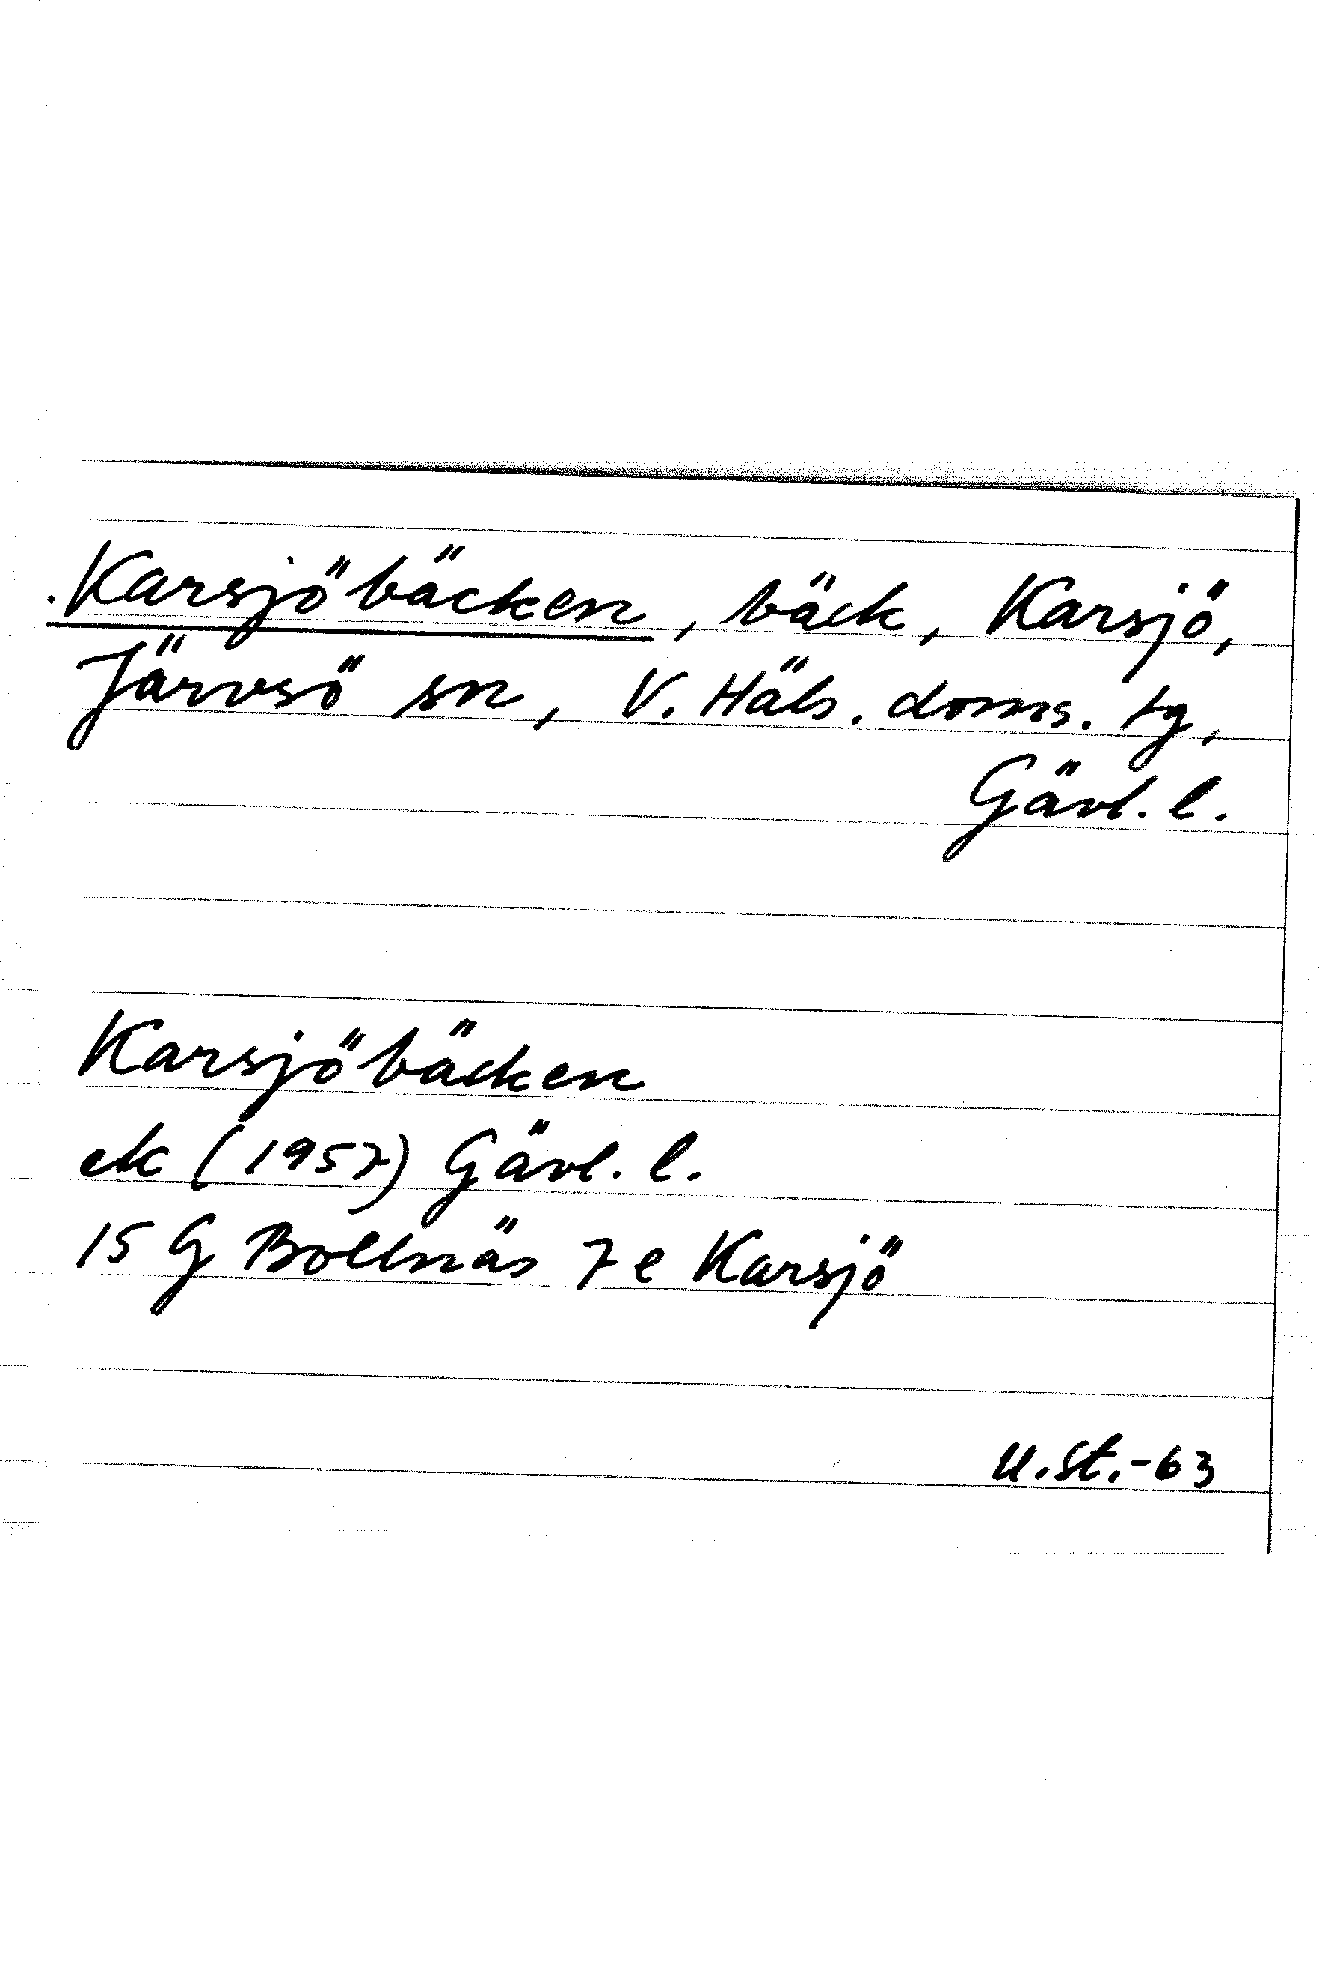 Karsjöbäcken, bäck, Karsjö,
Järvsö sn, V. Häls. doms. tg,
Gävl. l.
Karsjöbäcken
ek (1957) Gävl. l.
15 G Bollnäs 7e Karsjö
U.St.-63